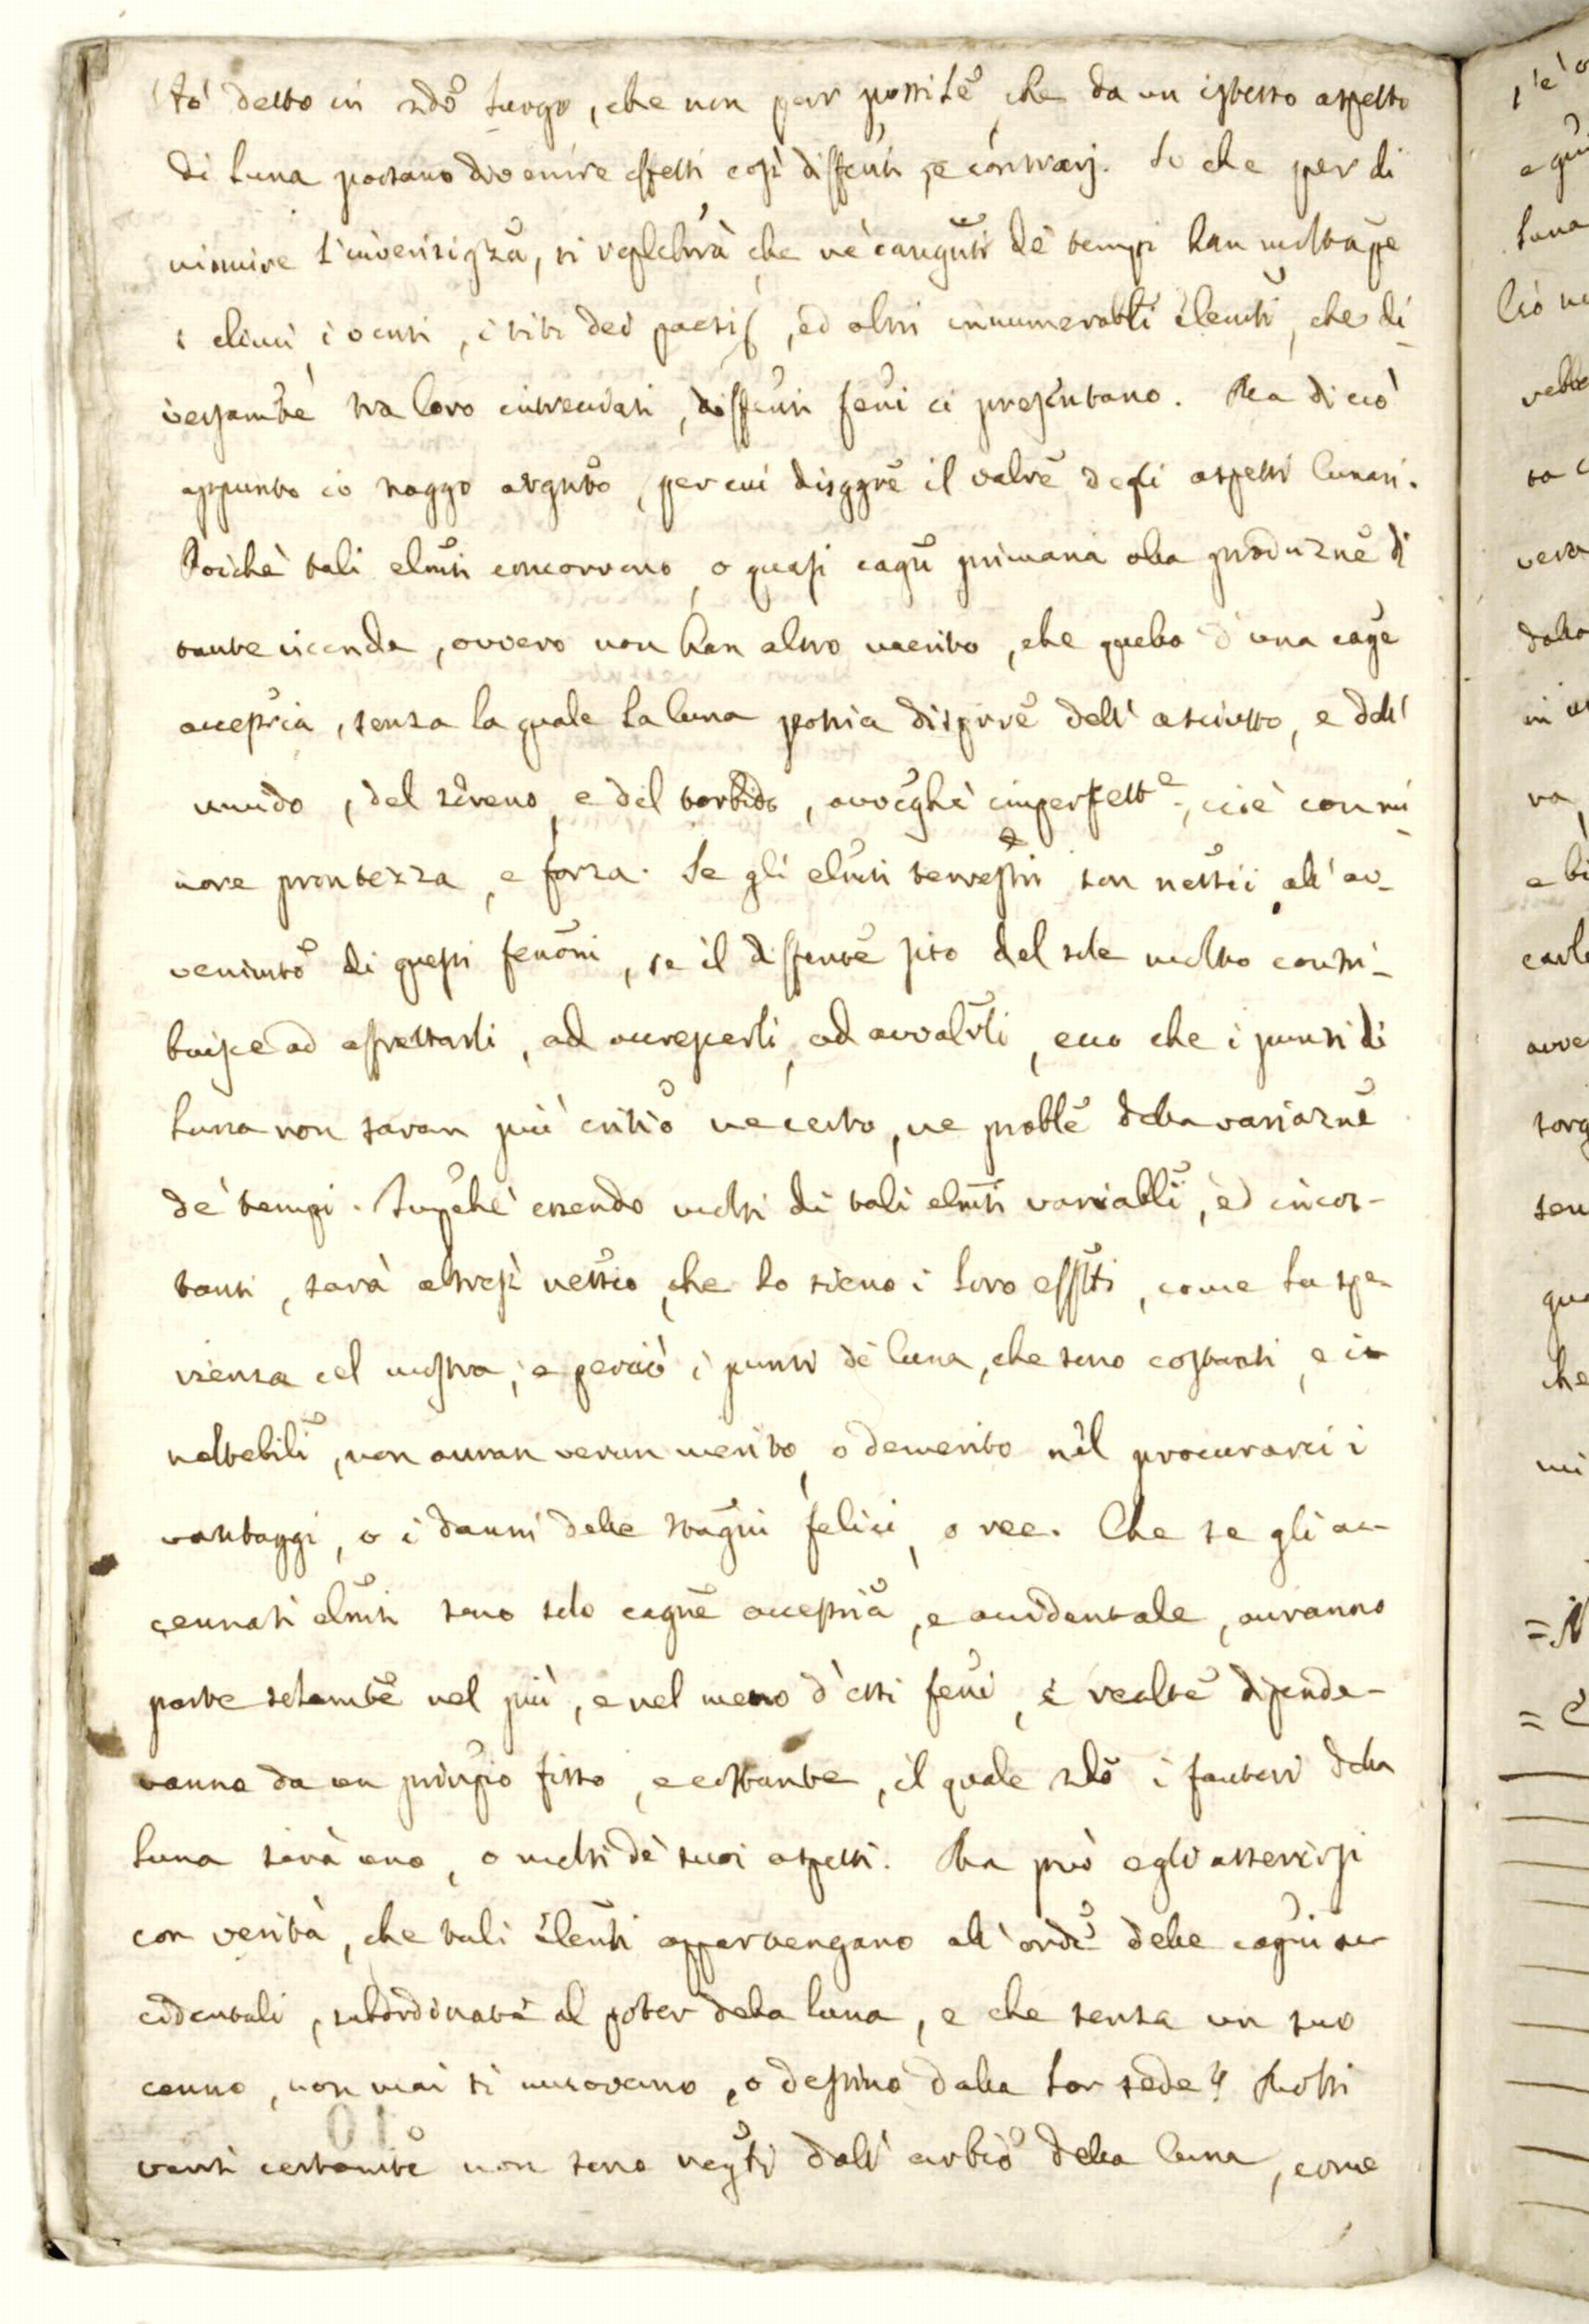 to' detto in 2do luogo, che non par possile che da un istesso aspetto
di Luna possano divenire effetti così diffenti, e contrarj. Lo che per di
minuire l'inverisigza, si refletterà che ne' cangnti de' tempi han molta pte
i climi, i venti, i siti dei paesi, ed altri innumerabli elenti, che di
versamte tra loro intrecciati, diffenti feni ci presentano. Ma di ciò
appunto io traggo argnto, per cui disggre il valre degli aspetti lunari.
Poichè tali elmti concorrono, o quasi cagn primaria alla produzne di
tante vicende, ovvero non han altro merito, che quello d'una cage
accessria, senza la quale la luna potria disporre dell'asciutto, e dell'
umido, del sereno, e del torbido, avvegnhè imperfette, cioè con mi
nore prontezza, e forza. Se gli elmti terrestri son nessii all'av-
venimto di questi fenomi, se il diffente sito del sole molto contri-
buisce ad affrettarli, ad accrescerli, ad avvalrli, ecco che i punti di
Luna non saran più critio nè certo, ne proble della variazne
de' tempi. Impchè essendo molti di tali elmti variabli, ed incos-
tanti, sarà altresì nessio, che lo sieno i loro effti, come la spe
rienza cel mostra; e perciò i punti di luna, che sono costanti, e in
voltebili, non avran verun merito, o demerito nel procurarci i
vantaggi, o i danni delle stagni felici, o ree. Che se gli ac-
cennati elmti sono solo cagne accessria, e accidentale, avranno
parte solamte nel più, e nel meno d'essi feni, e realte dipende-
ranno da un prinpio fisso, e costante, il quale 2do i fautori della
Luna sarà uno, o molti de' suoi aspetti. Ma può egli asserirsi
con verità, che tali elenti appartengano all'orde delle cagni ac
cidentali, subordinate al poter della luna, e che senza un suo
cenno, non mai si muovano, o destino dalla lor sede? Molti
venti certamte non sono regti dall'arbio della luna, come